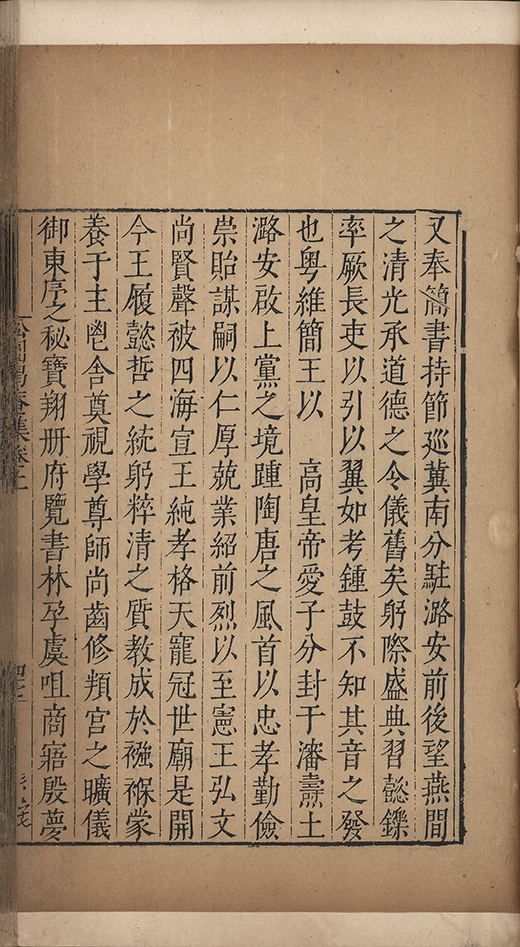 又奉簡書持節巡冀南分駐潞安前後望燕間
之清光承道德之令儀舊矣躬際盛典習懿鑠
率厥長吏以引以翼如考鍾鼓不知其音之發
也粵維簡王以　高皇帝愛子分封于瀋燾土
潞安啟上黨之境踵陶唐之風首以忠孝勤儉
崇貽謀嗣以仁厚兢業紹前烈以至憲王弘文
尚賢聲被四海宣王純孝格天寵冠世廟是開
今王履懿哲之統躬粹清之質教成於襁褓蒙
養于主鬯舍奠視學尊師尚齒修頖宮之曠儀
御東序之秘寶翔册府覽書林孕虞咀商寤殷夢
集卷之